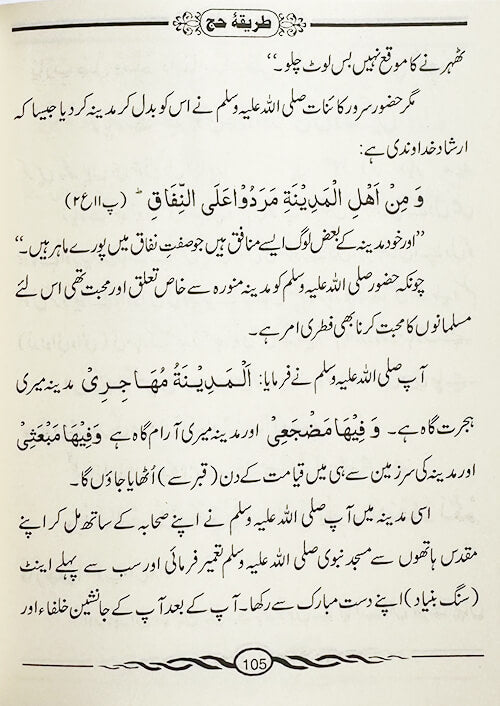 طریقۂ حج
ٹھہرنے کا موقع نہیں بس لوٹ چلو۔‘‘
مگر حضور سرور کائنات صلی اللہ علیہ وسلم نے اس کو بدل کر مدینہ کردیا جیسا کہ
ارشاد خداوندی ہے:
وَ مِنْ اَهْلِ الْمَدِيْنَةِ مَرَدُوْا عَلَى النِّفَاقِ ؕ (پ۱۱ع۲)
’’اور خود مدینہ کے بعض لوگ ایسے منافق ہیں جو صفتِ نفاق میں پورے ماہر ہیں۔‘‘
چونکہ حضور صلی اللہ علیہ وسلم کو مدینہ منورہ سے خاص تعلق اور محبت تھی اس لئے
مسلمانوں کا محبت کرنا بھی فطری امر ہے۔
آپ صلی اللہ علیہ وسلم نے فرمایا: اَلْـمَـدِيْـنَةُ مُهَـاجِـرِىْ مدینہ میری
ہجرت گاہ ہے۔ وَ فِيْهَا مَضْجَعِىْ اور مدینہ میری آرام گاہ ہے وَفِيْهَا مَبْعَثِىْ
اور مدینہ کی سرزمین سے ہی میں قیامت کے دن (قبر سے) اُٹھایا جاؤں گا۔
اسی مدینہ میں آپ صلی اللہ علیہ وسلم نے اپنے صحابہ کے ساتھ مل کر اپنے
مقدس ہاتھوں سے مسجد نبوی صلی اللہ علیہ وسلم تعمیر فرمائی اور سب سے پہلے اینٹ
(سنگ بنیاد) اپنے دست مبارک سے رکھا۔ آپ کے بعد آپ کے جانشین خلفاء اور
105